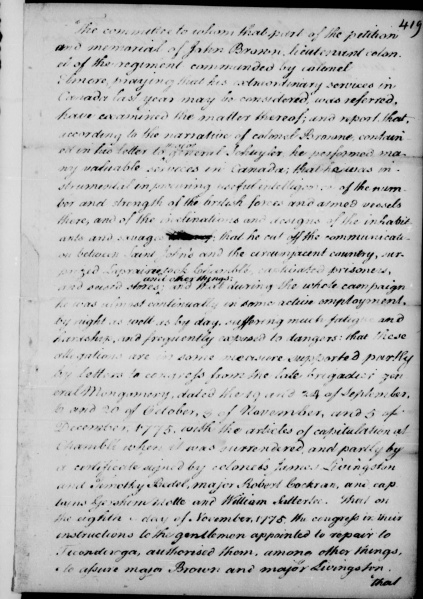 419
"The committee to whom that part of the petition
and memorial of John Brown, lieutenant colon
el of the regiment commanded by colonel
Elmore, praying that his extraordinary services in
Canada last year may be considered, was referred,
have examined the matter thereof; and report that,
according to the narrative of colonel Browne, contain
ed in his letter to General Schuyler, he performed ma
ny valuable services in Canada; that he was in
strumental in procuring useful intelligence of the num
ber and strength of the british forces and armed vessels
there, and of the inclinations and designs of the inhabit
ants and savages; that he cut off the communicati
on between saint John's and the circumjacent country, sur
prized Laprairie, took Chamble, captivated prisoners,
and other things;
and stores; and that during the whole campaign
he was almost continually in some active employment,
by night as well as by day, suffering much fatigue and
hardship, and frequently exposed to dangers: that these
allegations are in some measure supported partly
by letters to congress from the late brigadier gen
eral Montgomery, dated the 19 and 24 of September,
6 and 20 of October, 3 of November, and 5 of
December, 1775, with the articles of capitulation at
Chamblé when it was surrendered, and partly by
a certificate signed by colonels James Livingston
and Timothy Bedel, major Robert Cochran, and cap
tains Gershom Motte and William Satterlee. That on
the eighth day of November, 1775, the congress in their
instructions to the gentlemen appointed to repair to
Ticonderoga, authorised them, among other things,
to assure major Brown and major Livingston.
"that